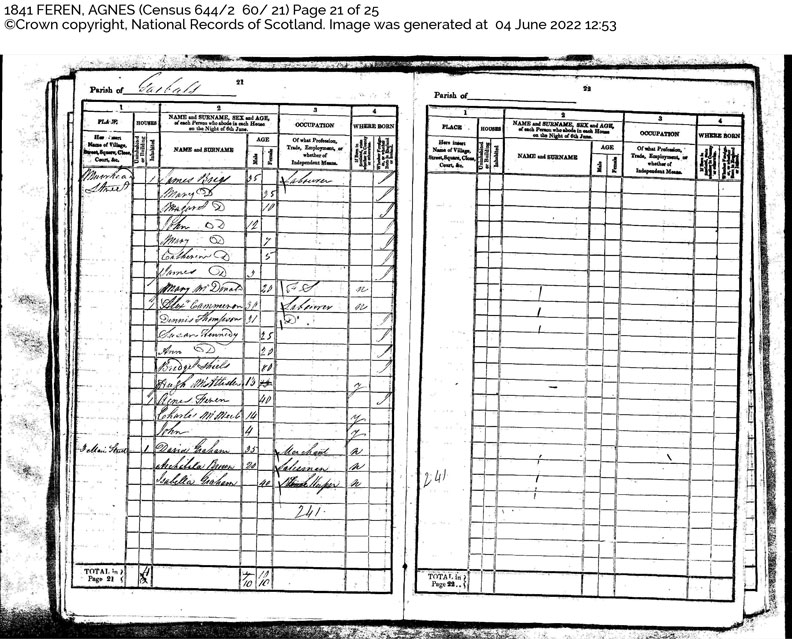 1841 FEREN, AGNES (Census 644/2 60/ 21) Page 21 of 25
©Crown copyright, National Records of Scotland. Image was generated at 04 June 2022 12:53
21
Parish of Gorbals
1 2 3 4
PLACE HOUSES NAME and SURNAME, SEX and AGE, of each Person who abode in each House on the Night of 6th June. OCCUPATION WHERE BORN
Here insert Name of Village, Street, Square, Close, Court, &c. Uninhabited or Building Inhabited NAME and SURNAME AGE Male Female Of what Profession, Trade, Employment, or whether of Independent Means.
Muirhead Street 1 James 35 Labourer
Mary D 35
D 10
John D 12
Mary D 7
Catherine D 5
James D 3
Mary McDonald 20 F.S n
Alexr Cammeron 30 Labourer n
Dennis Thompson 31 D
Susan Kennedy 25
Ann D 20
Bridget Shiels
Hugh 13 y
Agnes Feren 40
Charles 14 y
John 4 y
Main Street 1 David Graham 35 Merchant n
Brown 20 Salesman n
Isabella Graham 40 n
241
TOTAL in Page 21
10 10
22
Parish of
1 2 3 4
PLACE HOUSES NAME and SURNAME, SEX and AGE, of each Person who abode in each House on the Night of 6th June. OCCUPATION WHERE BORN
Here insert Name of Village, Street, Square, Close, Court, &c. Uninhabited or Building Inhabited NAME and SURNAME AGE Male Female Of what Profession, Trade, Employment, or whether of Independent Means.
241
TOTAL in Page 22